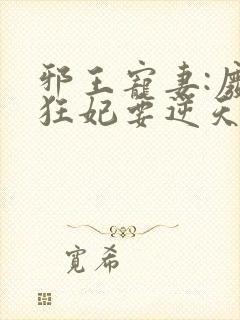 邪王寵妻:廢
狂妃要逆天
寬希